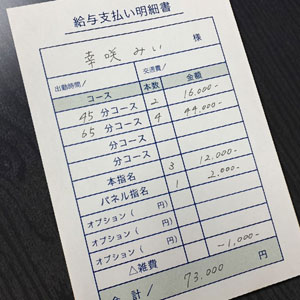 給与支払い明細書
幸咲 みい 様
出勤時間/ 交通費/
コース 本数 金額
45 分コース 2 16.000-
65 分コース 4 44.000-
分コース
分コース
本指名 3 12.000-
パネル指名 1 2.000-
オプション( 円)
オプション( 円)
オプション( 円)
△雑費 -1.000-
合 計 / 73.000 円